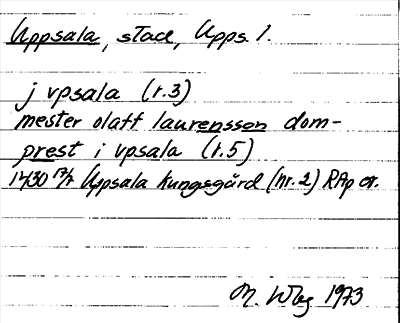 Uppsala, stad, Upps. l.
j vpsala (r.3)
mester olaff laurensson dom-
prest i vpsala (r.5)
1430 17/7 Uppsala Kungsgård (nr. 2) RAp or.
M. Wbg 1973